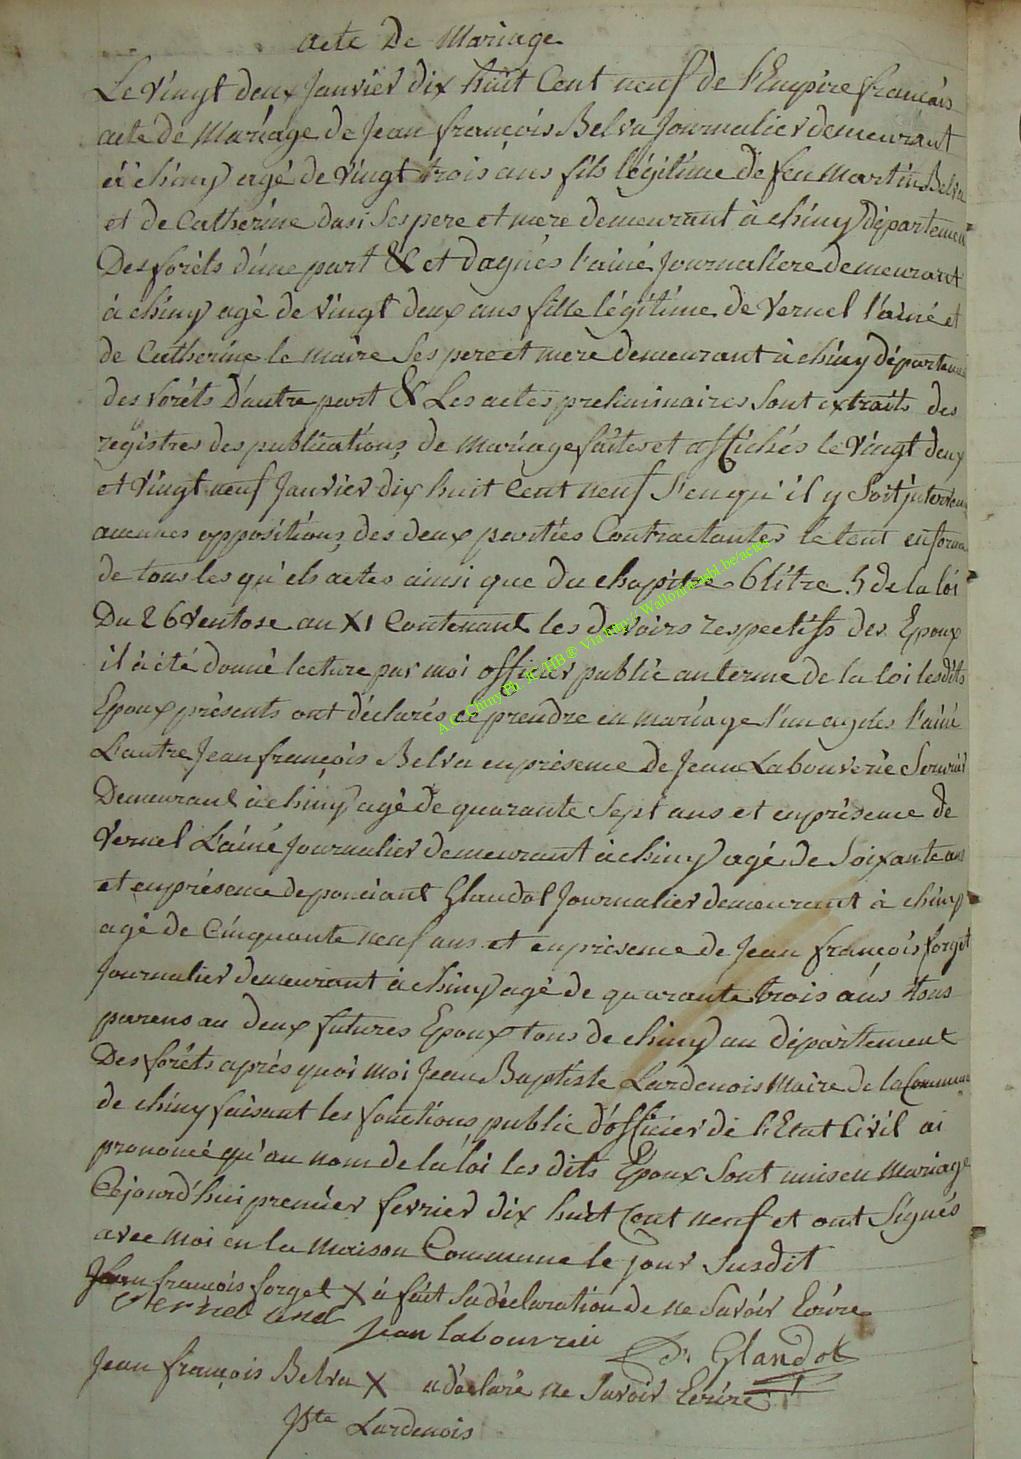 acte De Mariage
Le vingt deux Janvier dix huit Cent neuf de l'Empire francais
acte de Mariage de Jean francois Belva Journalier demeurant
à chiny agé de vingt trois ans fils légitime de feu Martin Belva
et de Catherine dasi Ses pere et mere demeurant à chiny Département
Des forêts d'une part & et d'agnés l'ainé Journaliere demeurant
à chiny agé de vingt deux ans fille légitime de vernel l'ainé et
de Catherine le maire Ses pere et mere demeurant à chiny département
des forêts D'autre part & Les actes preliminaires Sont extraits des
régistres des publications de mariage faites et affichés le vingt deux
et vingt neuf Janvier dix huit Cent neuf S'en qu'il y Soit intervenu
aucunes oppositions des deux parties Contractantes le tout en forme
de tous les qu'els actes ainsi que du chapitre 6 titre .5 de la loi
Du 26 ventose an XI Contenant les devoirs respectifs des Epoux
il à été donné lecture par moi officier public au terme de la loi lesdits
Epoux présents ont déclarés ce prendre en mariage l'un agnes l'ainé
L'autre Jean françois Belva en présence de Jean Labouverie
Demeurant à chiny agé de quarante Sept ans et en présence de
vernel L'ainé Journalier demeurant à chiny agé de Soixante ans
et en présence de ponciant Glandot Journalier demeurant à chiny
agé de Cinquante neuf ans et en présence de Jean françois forget
Journalier demeurant à chiny agé de quarante trois ans tous
parens au deux futures Epoux tous de chiny au département
Des forêts après quoi moi Jean Baptiste Lardenois Maire de la Commune
de chiny faisant les fonctions public d'officier de l'Etat Civil ai
prononcé qu'au nom de la loi les dits Epoux Sont unis en Mariage
Cejourd'hui premier fevrier dix huit Cent neuf et ont Signés
avec moi en la maison Commune le jour Susdit
Jean francois forget X à fait Sa déclaration de ne Savoir Ecrire
Jean labouvrie
Glandot
Jean françois Belva X a déclaré ne Savoir Ecrire
JBte Lardenois